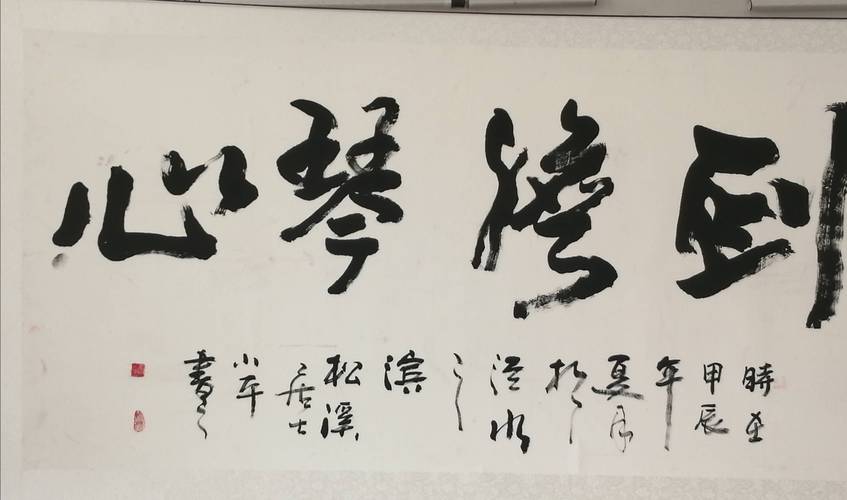 剑胆琴心
時在
甲辰
年
夏月
於
涇水
之
滨
松溪
居士
小平
書之